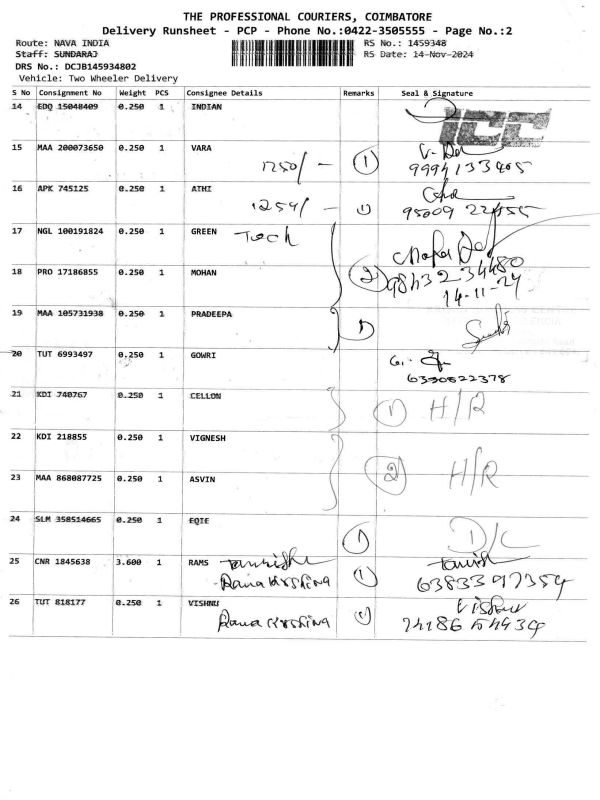 THE PROFESSIONAL COURIERS, COIMBATORE
Delivery Runsheet - PCP - Phone No.:0422-3505555 - Page No.:2
Route: NAVA INDIA RS No.: 1459348
Staff: SUNDARAJ RS Date: 14-Nov-2024
DRS No.: DCJB145934802
Vehicle: Two Wheeler Delivery
S No Consignment No Weight PCS Consignee Details Remarks Seal & Signature
14 EDQ 15048409 0.250 1 INDIAN ICC
15 MAA 200073650 0.250 1 VARA
1250/- 1 9994133405
16 APK 745125 0.250 1 ATHI
1254/- 1 95009 22455
17 NGL 100191824 0.250 1 GREEN Tech
18 PRO 17186855 0.250 1 MOHAN 2 98432 34480
14-11-24
19 MAA 105731938 0.250 1 PRADEEPA 1
20 TUT 6993497 0.250 1 GOWRI
6330522378
21 KDI 740767 0.250 1 CELLON 1 H/R
22 KDI 218855 0.250 1 VIGNESH
2 H/R
23 MAA 868087725 0.250 1 ASVIN
24 SLM 358514665 0.250 1 EQIE 1 D/C
25 CNR 1845638 3.600 1 RAMS
Rama Krishna 1 6383397354
26 TUT 818177 0.250 1 VISHNU Vishnu
Rama Krishna 1